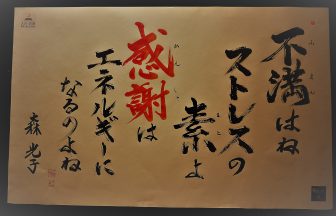 不満はね
ストレスの
素よ
感謝は
エネルギーに
なるのよね
森光子